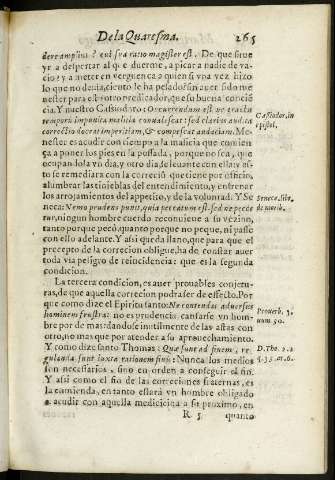 De la Quaresma. 265
derram sui na? cui sua ratio magister est. De que sirue
yr a despertar al que duerme, a picar a nadie de va-
cio? y a meter en verguença a quien si vna vez hizo
lo que no deuia, ciento le ha pesado? sin auer sido me
nester para esto otro predicador, que su buena concié
cia. Y nuestro Casiodoro: Occurrendum est ne gracili
tempore impunita malicia conualescat: sed clarius audita
correctio doceat imperitiam, & compescat audaciam. Me-
nester es acudir con tiempo a la malicia que comien
ça a poner los pies en la possada, porque no sea, que
ocupando la vn dia, y otro dia se leuante con ella: y es-
to se remediara con la correciõ que tiene por oficio,
alumbrar las tinieblas del entendimiento, y enfrenar
los arrojamientos del appetito, y de la voluntad. Y Se
neca: Nemo prudens punit, quia peccatum est: sed ne pecce
tur, ningun hombre cuerdo reconuiene a su vezino,
tanto porque pecó, quanto porque no peque, ni passe
con ello adelante. Y assi queda llano, que para que el
precepto de la correcion obligue, ha de constar auer
toda via peligro de reiucidencia: que es la segunda
condicion.
La tercera condicion, es auer prouables conjetu-
ras, de que aquella correcion podra ser de effecto. Por
que como dize el Espiritu santo: Ne contendas aduersus
hominem frustra: no es prudencia cansarse vn hom-
bre por demas: dandose inutilmente de las astas con
otro, no mas que por atender a su aprouechamiento.
Y como dize santo Thomas: Quæ sunt ad finem, re-
gulanda sunt iuxta rationem finis: Nunca los medios
son necessarios, sino en orden a conseguir el fin.
Y assi como el fin de las correciones fraternas, es
la emienda, en tanto estará vn hombre obligado
a acudir con aquella medicicina a su proximo, en
R 5 quanto
Casiodor. in
epistol.
Seneca, lib.
de morib.
Prouerb. 3.
num. 30.
D. Tho. 2. 2.
q. 33. ar. 6.